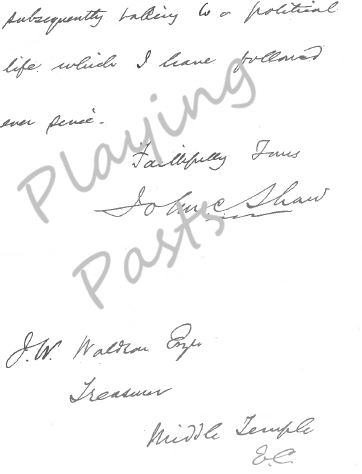 subsequently taking to a political
life which I have followed
ever since.
Faithfully Yours
John C Shaw
J. W. Waldron Esqre
Treasurer
Middle Temple
E.C.
Playing
Pasts